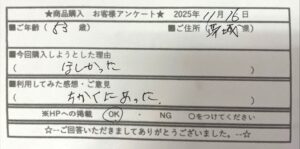 ★商品購入 お客様アンケート★ 2025年11月16日
■ご年齢( 53 歳) ■ご住所(茨城県)
■今回購入しようとした理由
( ほしかった )
■利用してみた感想・ご意見
( ちかくにあった。 )
※HPへの掲載 OK ・ NG ○をつけてください
☆--ご回答いただきましてありがとうございました。--☆